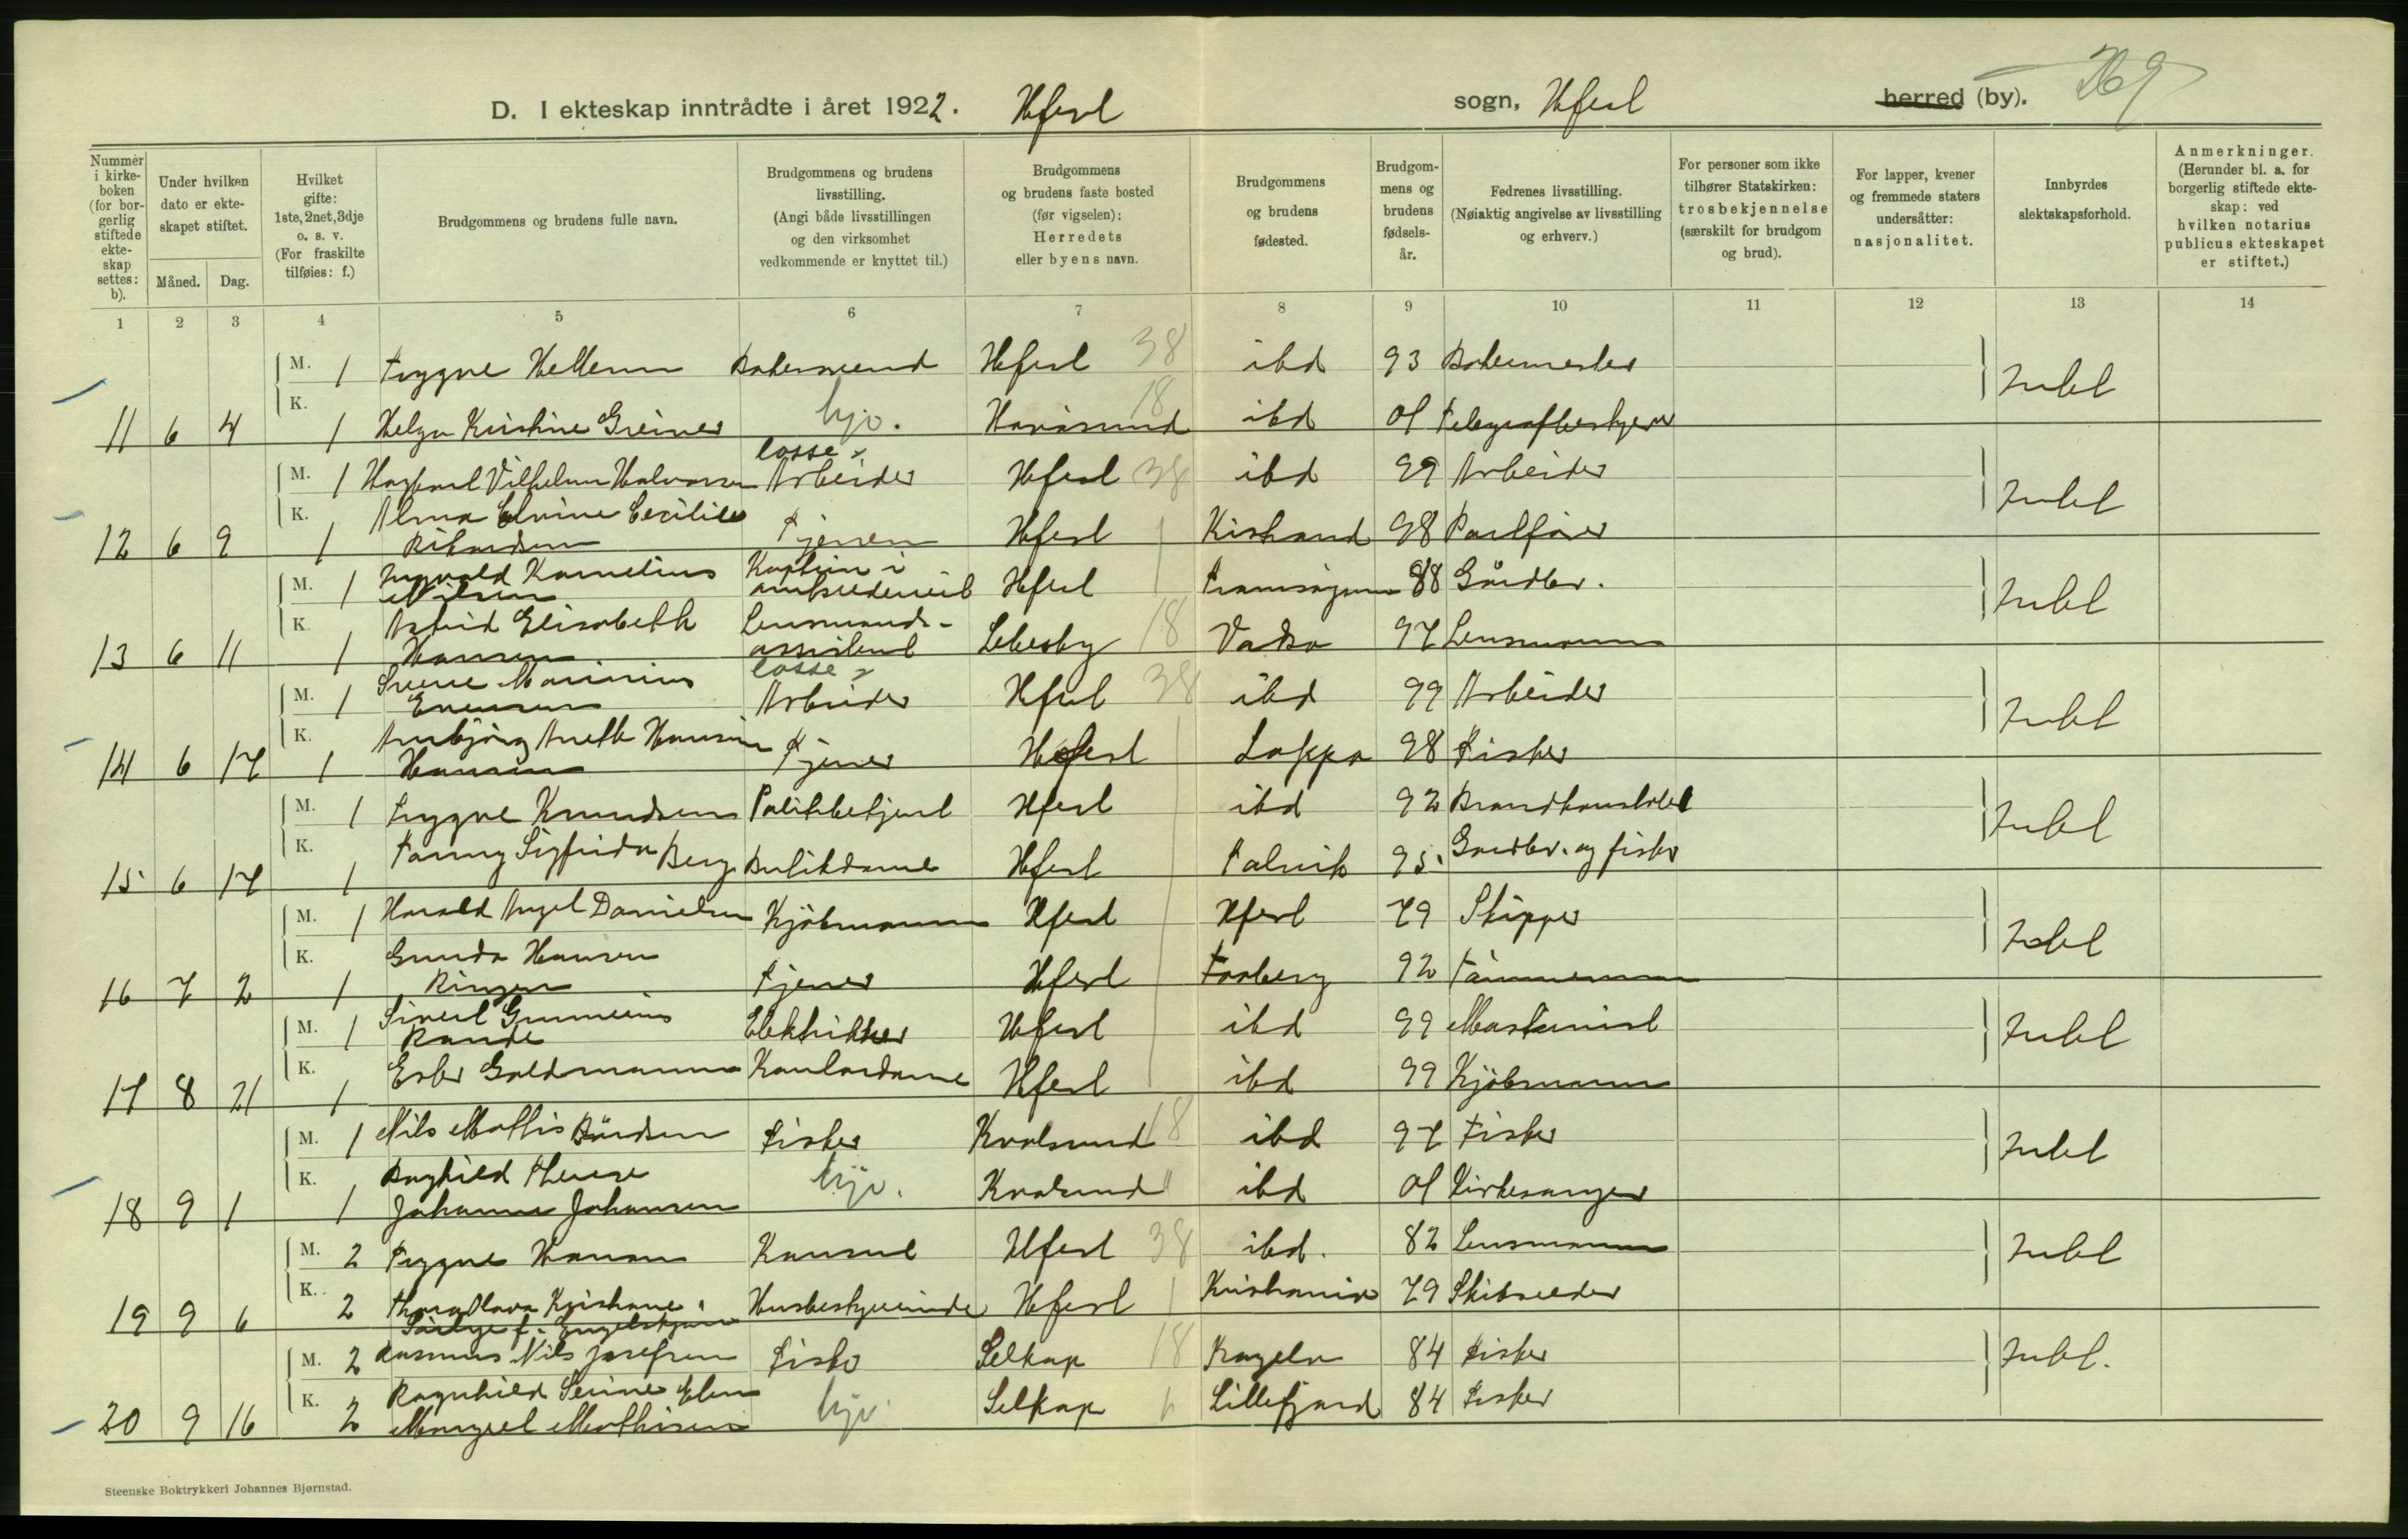 D. I ekteskap inntrådte i året 1922. Hfest sogn, Hfest herred (by). 269
Nummer i kirkeboken (for borgerlig stiftede ekteskap settes: b).
Under hvilken dato er ekteskapet stiftet.
Måned. Dag.
Hvilket gifte: 1ste, 2net, 3dje o. s. v. (For fraskilte tilføies: f.)
Brudgommens og brudens fulle navn.
Brudgommens og brudens livsstilling. (Angi både livsstillingen og den virksomhet vedkommende er knyttet til.)
Brudgommens og brudens faste bosted (før vigselen): Herredets eller byens navn.
Brudgommens og brudens fødested.
Brudgommens og brudens fødselsår.
Fedrenes livsstilling. (Nøiaktig angivelse av livsstilling og erhverv.)
For personer som ikke tilhører Statskirken: trosbekjennelse (særskilt for brudgom og brud).
For lapper, kvener og fremmede staters undersåtter: nasjonalitet.
Innbyrdes slektskapsforhold.
Anmerkninger. (Herunder bl. a. for borgerlig stiftede ekteskap: ved hvilken notarius publicus ekteskapet er stiftet.)
1 2 3 4 5 6 7 8 9 10 11 12 13 14
M. 1 Trygve Hellem Bakersvend Hfest 38 ibd 93 Bakermester Intet
11 6 4 K. 1 Helga Kristine Greiner hjv. Havösund 18 ibd 01 Telegrafbestyrer
M. 1 Vilhelm Halvorsen losse Arbeider Hfest 38 ibd 99 Arbeider Intet
12 6 9 K. 1 Alma Elvine Cecilie Rikardsen Tjener Hfest Kistrand 98 Postfører
M. 1 Ingvald Kornelius Nilsen Kaptein i Hfest 1 Tromsøysund 88 Gårdbr. Intet
13 6 11 K. 1 Astrid Elisabeth Hansen Lensmandsassistent Lebesby 18 Vadsø 97 Lensmann
M. 1 Sverre Marinius Evensen losse Arbeider Hfest 38 ibd 99 Arbeider Intet
14 6 17 K. 1 Anbjørg Aneth Hansen Hansen Tjener Hfest Loppa 98 Fisker
M. 1 Trygve Knudsen Politibetjent Hfest ibd 92 Brandkonstabel Intet
15 6 17 K. 1 Fanny Sigfrida Berg Butikdame Hfest Talvik 95. Gårdbr. og fisker
M. 1 Harald Angel Danielsen Kjöbmann Hfest Hfest 79 Skipper Intet
16 7 2 K. 1 Gunda Hansen Ringen Tjener Hfest Fosberg 92 Tömmermann
M. 1 Sivert Rande Elektriker Hfest ibd 99 Maskinist Intet
17 8 21 K. 1 Ester Goldmann Kontordame Hfest ibd 99 Kjöbmann
M. 1 Nils Mathis Bårdsen Fisker Kvalsund 18 ibd 97 Fisker Intet
18 9 1 K. 1 Raghild Therese Johanne Johansen hjv. Kvalsund " ibd 01 Kirkesanger
M. 2 Trygve Hanson Konsul Hfest 38 ibd. 82 Lensmann Intet
19 9 6 K. 2 Thora Olava Kristiane Husbestyrerinde Hfest 1 Kristiania 79 Skibsreder
M. 2 Rasmus Nils Josefsen Fisker Selkop 18 84 Fisker Intet.
20 9 16 K. 2 Ragnhild Serine Elen Margret Mathisen hjv. Selkop " Lillefjord 84 Fisker
Steenske Boktrykkeri Johannes Bjørnstad.